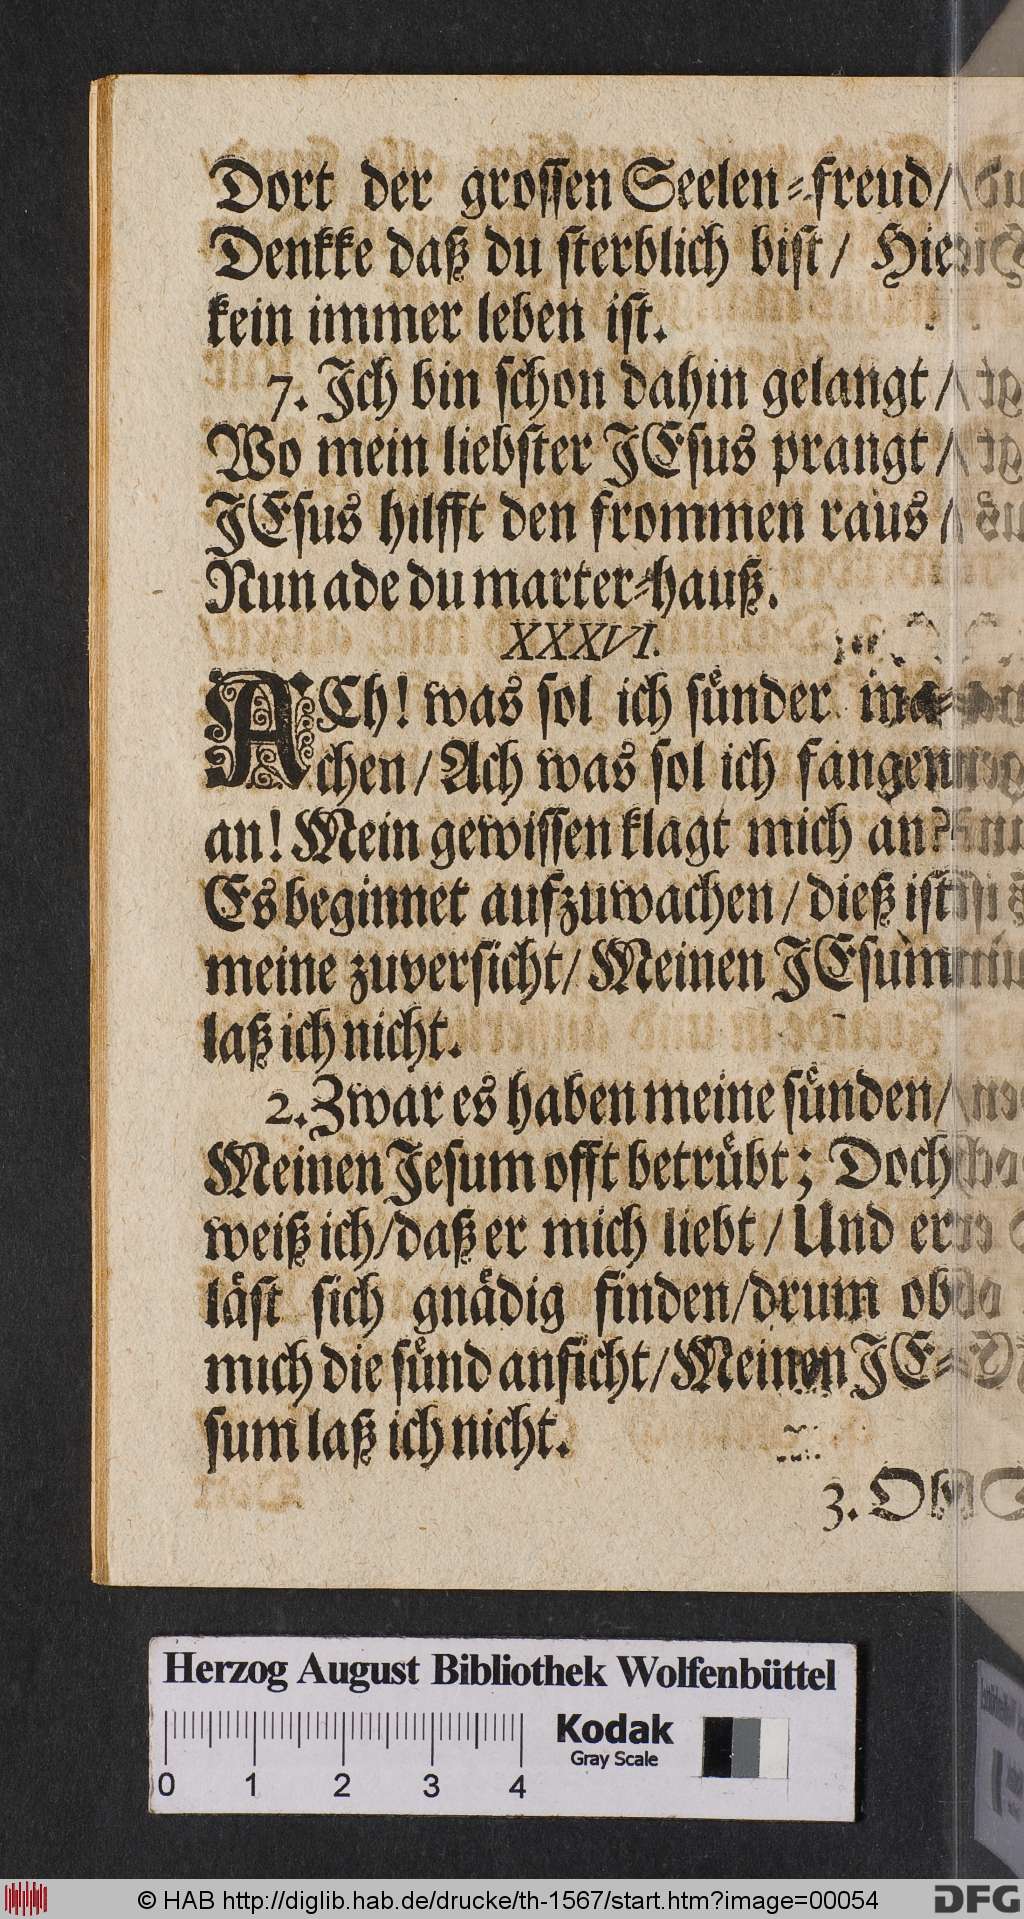 Dort der grossen Seelen-freud/
Denkke daß du sterblich bist/ Hie
kein immer leben ist.
7. Ich bin schon dahin gelangt/
Wo mein liebster JEsus prangt/
JEsus hilfft den frommen raus/
Nun ade du marter-hauß.
XXXVI.
ACh! was sol ich sůnder ma-
chen/ Ach was sol ich fangen
an! Mein gewissen klagt mich an?
Es beginnet aufzuwachen/ dieß ist
meine zuversicht/ Meinen JEsum
laß ich nicht.
2. Zwar es haben meine sůnden/
Meinen Jesum offt betrůbt; Doch
weiß ich/ daß er mich liebt/ Und er
låst sich gnådig finden/ drum ob
mich die sůnd anficht/ Meinen JE-
sum laß ich nicht.
3. Ob
Herzog August Bibliothek Wolfenbüttel
Kodak
Gray Scale
0 1 2 3 4
© HAB http://diglib.hab.de/drucke/th-1567/start.htm?image=00054
DFG